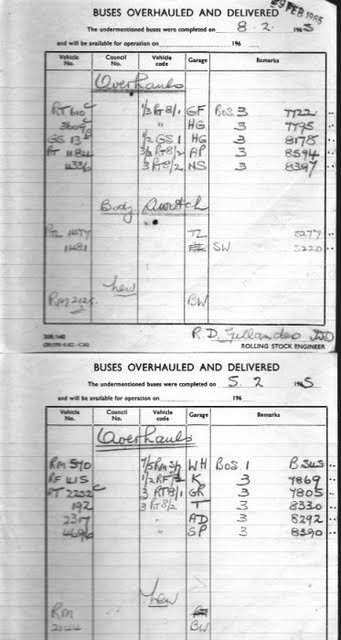 BUSES OVERHAULED AND DELIVERED
9 FEB 1965
The undermentioned buses were completed on 8.2. 1965
and will be available for operation on 196
Vehicle No. Council No. Vehicle code Garage Remarks
Overhauls
RT 610 C 1/3 RT 8/1 GF BOS 3 7722
3609 " HG 3 7795
GS 13 B 1/2 GS 1 HG 3 8178
RT 1184 3/3 RT8/2 AP 3 8594
4336 3 RT8/2 NS 3 8397
Body Switch
RTL 1477 TL 5277
1481 SW 5220
New
RM 2125 BW
ROLLING STOCK ENGINEER
BUSES OVERHAULED AND DELIVERED
The undermentioned buses were completed on 5.2 1965
and will be available for operation on 196
Vehicle No. Council No. Vehicle code Garage Remarks
Overhauls
RM 570 7/5 RM 3/7 WH BOS 1
RF 415 1/2 RF/3 K 3 7869
RT 2252 C 3 RT8/1 GR 3 7805
192 3 RT8/2 T 3 8330
2317 " AD 3 8292
4696 " SP 3 8390
New
RM
2124 BW